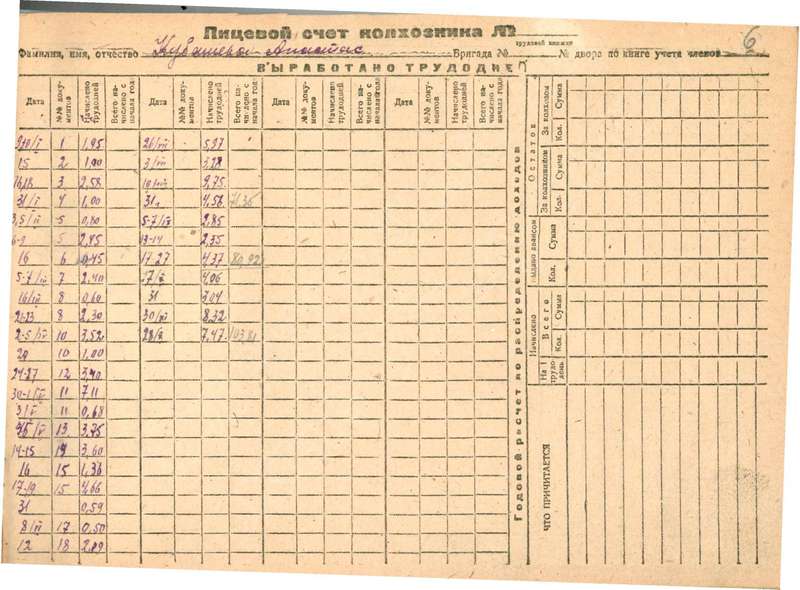 Лицевой счет колхозника №
трудовой книжки
Фамилия, имя, отчество Бригада № № двора по книге учета членов 6
ВЫРАБОТАНО ТРУДОДНЕЙ
Дата №№ документов Начислено трудодней Всего начислено с начала года Дата №№ документов Начислено трудодней Всего начислено с начала года Дата №№ документов Начислено трудодней Всего начислено с начала года Дата №№ документов Начислено трудодней Всего начислено с начала года
1 1,95 5,97
15 2 1,00 3,28
3 2,58 9,75
31/ 4 1,00 31 4,56 71,35
3,5/ 5 0,80 5-7/ 2,85
6-9 5 2,45 13-14 2,35
16 6 0,45 17-27 4,37 80,92
5-7/ 7 2,40 4,06
16/ 8 0,60 31 3,04
21-23 8 2,30 30/ 8,32
2-5/ 10 3,52 28/ 7,47 103,81
29 10 1,00
24-27 12 3,40
30-1/ 11 7,11
3/ 11 0,68
13 3,75
14-15 14 3,60
16 15 1,36
17-19 15 4,66
31 0,59
8/ 17 0,50
12 18 2,89
Годовой расчет по распределению доходов
Остаток
За колхозом
Кол. Сумма
За колхозником
Кол. Сумма
Выдано авансом
Кол. Сумма
Начислено
Всего
Кол. Сумма
На 1 трудодень
ЧТО ПРИЧИТАЕТСЯ